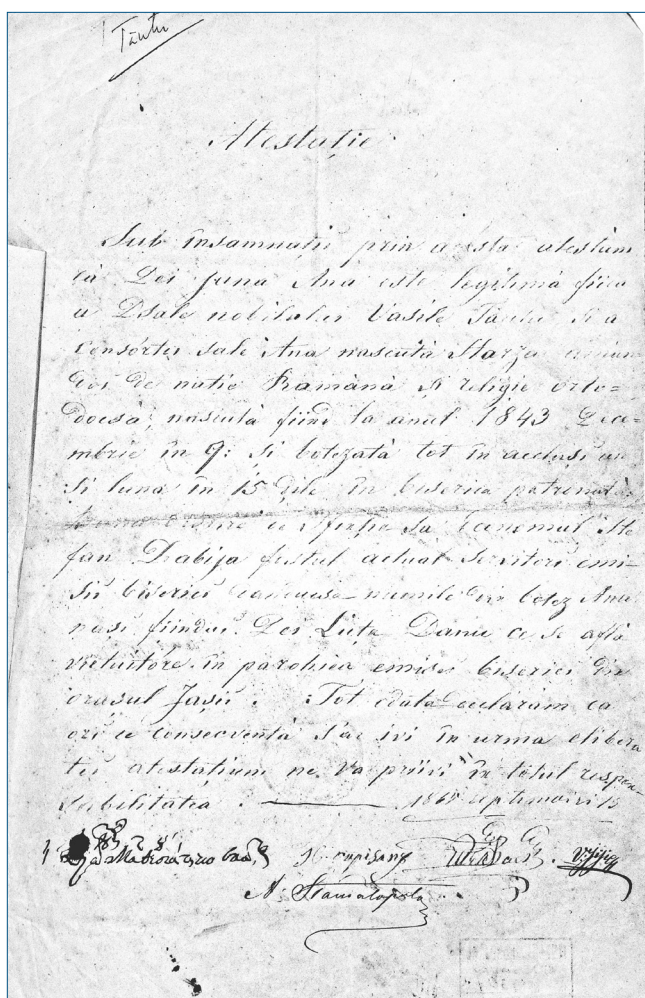 Tăutu
Atestație
Sub însamnații prin acésta atestăm
că Dei juna Ana este legitimă fiica
a Dsale nobilului Vasile Tăutu și a
consórtei sale Ana născută Starza
de natie Română si religie orto=
docsă, născută fiind la anul 1843 Dece=
mbrie în 9: si botezată tot în acelasi an
si luna în 15 zile în biserica patronată
ce Sfinția sa Econumul Ste
fan Dabija fostul actual servitori emi=
sii biserici numile din botez Ana
nasi fiindui Dei Luța Danu ce se află
viețuitóre în parohiea emisei biserici din
orasul Jasii. Tot odată declarăm ca
ori ce consecventă s'ar ivi în urma elibera
tei atestatium ne va priivi în totul respon-
sabilitatia. 1865 septemvri 15
N. Stamatopolu